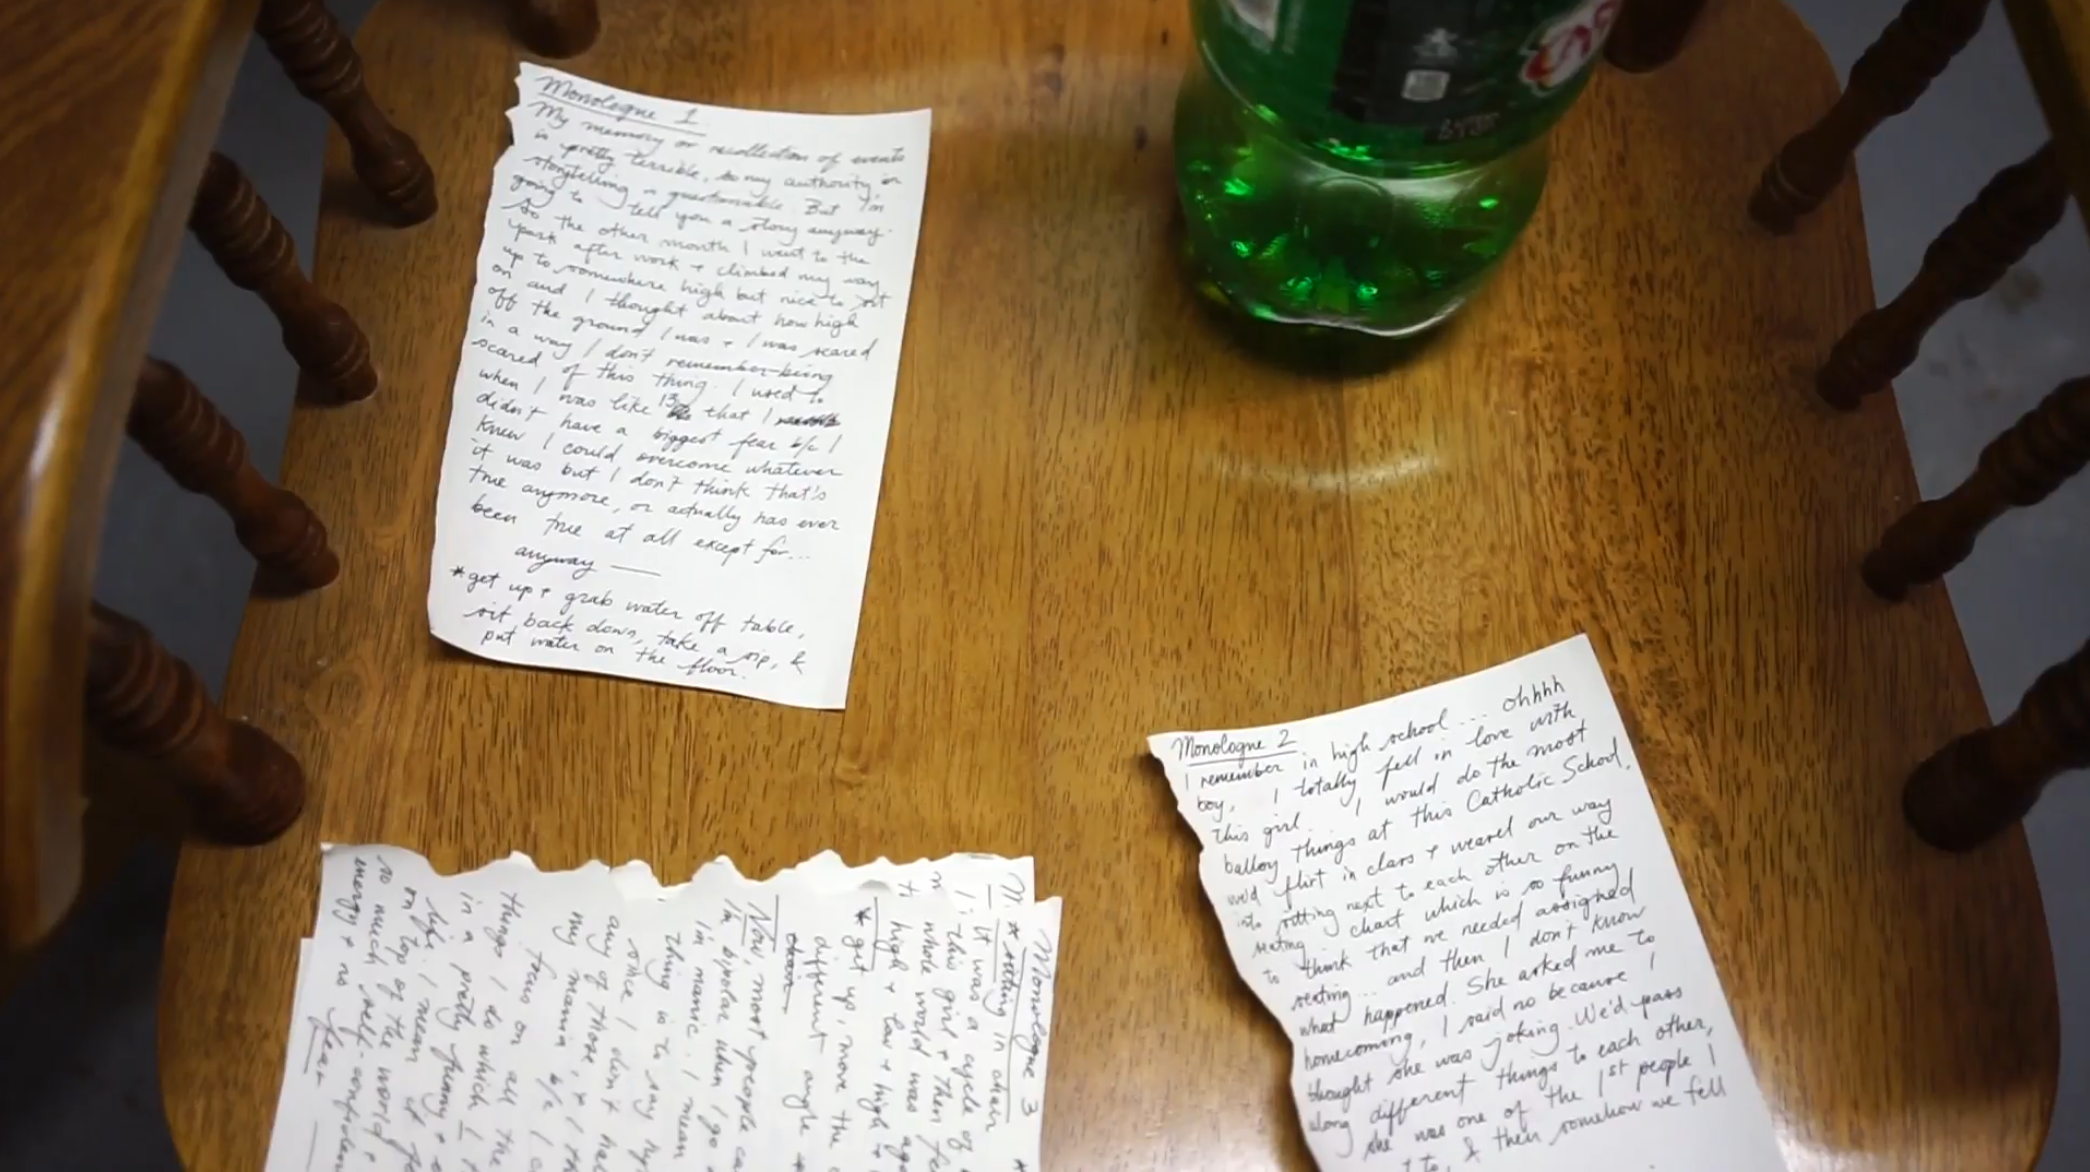 Monologue 1
My memory or recollection of events
is pretty terrible, so my authority in
storytelling is questionable. But I'm
going to tell you a story anyway.
So the other month I went to the
park after work + climbed my way
up to somewhere high but nice to sit
on and I thought about how high
off the ground I was + I was scared
in a way I don't remember being
scared of this thing. I used to
when I was like 13 that I
didn't have a biggest fear b/c I
knew I could overcome whatever
it was but I don't think that's
true anymore, or actually has ever
been true at all except for...
anyway —
*get up + grab water off table,
sit back down, take a sip, &
put water on the floor.
Monologue 2
I remember in high school... ohhhh
boy, I totally fell in love with
this girl. I would do the most
balloy things at this Catholic School,
we'd flirt in class + weasel our way
into sitting next to each other on the
seating chart which is so funny
to think that we needed assigned
seating... and then I don't know
what happened. She asked me to
homecoming, I said no because I
thought she was joking. We'd pass
along different things to each other,
she was one of the 1st people I
to, & then somehow we fell
Monologue 3
*sitting in chair
It was a cycle of
this girl + then
whole world was
high + low + high +
*get up, move the
different angle
Now, most people
I'm bipolar when I go
I'm manic. I mean
thing is to say
since I don't
any of those, + I
my mania b/c I
focus on all the
things I do which I
in a pretty funny +
life. I mean it
on top of the world +
so much self-confidence
energy + no fear